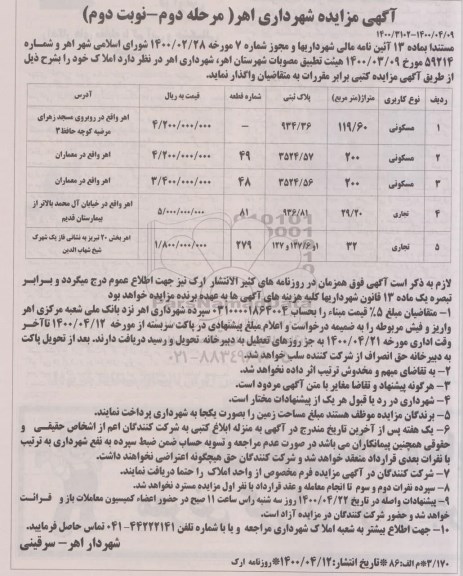 آگهی مزایده شهرداری اهر( مرحله دوم-نوبت دوم)
۱۴۰۰/۳۱۰۲-۱۴۰۰/۰۴/۰۹
مستندا بماده ۱۳ آئین نامه مالی شهرداریها و مجوز شماره ۷ مورخه ۱۴۰۰/۰۲/۲۸ شورای اسلامی شهر اهر و شماره
۵۹۲۱۴ مورخ ۱۴۰۰/۰۳/۰۹ هیئت تطبیق مصوبات شهرستان اهر، شهرداری اهر در نظر دارد املاک خود را بشرح ذیل
از طریق آگهی مزایده کتبی برابر مقررات به متقاضیان واگذار نماید.
ردیف نوع کاربری متراژ(متر مربع) پلاک ثبتی شماره قطعه قیمت به ریال آدرس
۱ مسکونی ۱۱۹/۶۰ ۹۳۴/۳۶ – ۴/۲۰۰/۰۰۰/۰۰۰ اهر واقع در روبروی مسجد زهرای
مرضیه کوچه حافظ۳
۲ مسکونی ۲۰۰ ۳۵۲۴/۵۷ ۴۹ ۴/۲۰۰/۰۰۰/۰۰۰ اهر واقع در معماران
۳ مسکونی ۲۰۰ ۳۵۲۴/۵۶ ۴۸ ۳/۴۰۰/۰۰۰/۰۰۰ اهر واقع در معماران
۴ تجاری ۲۹/۲۰ ۹۳۶/۸۱ ۸۱ ۵/۰۰۰/۰۰۰/۰۰۰ اهر واقع در خیابان آل محمد بالاتر از
بیمارستان قدیم
۵ تجاری ۳۲ ۱۲۷/۶و۱ و ۱۲۷ ۲۷۹ ۱/۸۰۰/۰۰۰/۰۰۰ اهر بخش ۲۰ تبریز به نشانی فاز یک شهرک
شیخ شهاب الدین
لازم به ذکر است آگهی فوق همزمان در روزنامه های کثیر الانتشار ارک نیز جهت اطلاع عموم درج میگردد و برابر
تبصره یک ماده ۱۳ قانون شهرداریها کلیه هزینه های آگهی ها به عهده برنده مزایده خواهد بود
۱- متقاضیان مبلغ ۵٪ قیمت مبناء را بحساب ۰۳۱۰۰۰۰۱۸۶۴۰۰۴ سپرده شهرداری اهر نزد بانک ملی شعبه مرکزی اهر
واریز و فیش مربوطه را به ضمیمه درخواست و اعلام مبلغ پیشنهادی در پاکت سربسته از مورخه ۱۴۰۰/۰۴/۱۲ تا آخر
وقت اداری مورخه ۱۴۰۰/۰۴/۲۱ به جز روزهای تعطیل به دبیرخانه تحویل و رسید دریافت دارند. بعد از تحویل پاکت
به دبیرخانه حق انصراف از شرکت کننده سلب خواهد شد.
۲- به تقاضای مبهم و مخدوش ترتیب اثر داده نخواهد شد.
۳- هرگونه پیشنهاد و تقاضا مغایر با متن آگهی مردود است.
۴- شهرداری در رد یا قبول هر یک از پیشنهادات مختار است.
۵- برندگان مزایده موظف هستند مبلغ مساحت زمین را بصورت یکجا به شهرداری پرداخت نمایند.
۶- یک هفته پس از آخرین تاریخ مندرج در آگهی به منزله ابلاغ کتبی به شرکت کنندگان اعم از اشخاص حقیقی و
حقوقی همچنین پیمانکاران می باشد در صورت عدم مراجعه و تسویه حساب ضمن ضبط سپرده به نفع شهرداری به ترتیب
با نفرات بعدی قرارداد منعقد خواهد شد و شرکت کنندگان حق هیچگونه اعتراضی نخواهند داشت.
۷- شرکت کنندگان در آگهی مزایده فرم مخصوص از واحد املاک را حتما دریافت نمایند.
۸- سپرده نفرات دوم و سوم تا انجام معامله و عقد قرارداد با نفر اول مزایده مسترد نخواهد شد.
۹- پیشنهادات واصله در تاریخ ۱۴۰۰/۰۴/۲۲ روز سه شنبه راس ساعت ۱۱ صبح در حضور اعضاء کمیسیون معاملات باز و قرائت
خواهد شد و حضور شرکت کنندگان در مزایده آزاد است.
۱۰- جهت اطلاع بیشتر به شعبه املاک شهرداری مراجعه و یا با شماره تلفن ۴۴۲۲۲۱۴۱-۰۴۱ تماس حاصل فرمایید.
شهردار اهر- سرقینی
۳/۱۷۰*م الف:۸۶ *تاریخ انتشار:۱۴۰۰/۰۴/۱۲*روزنامه ارک